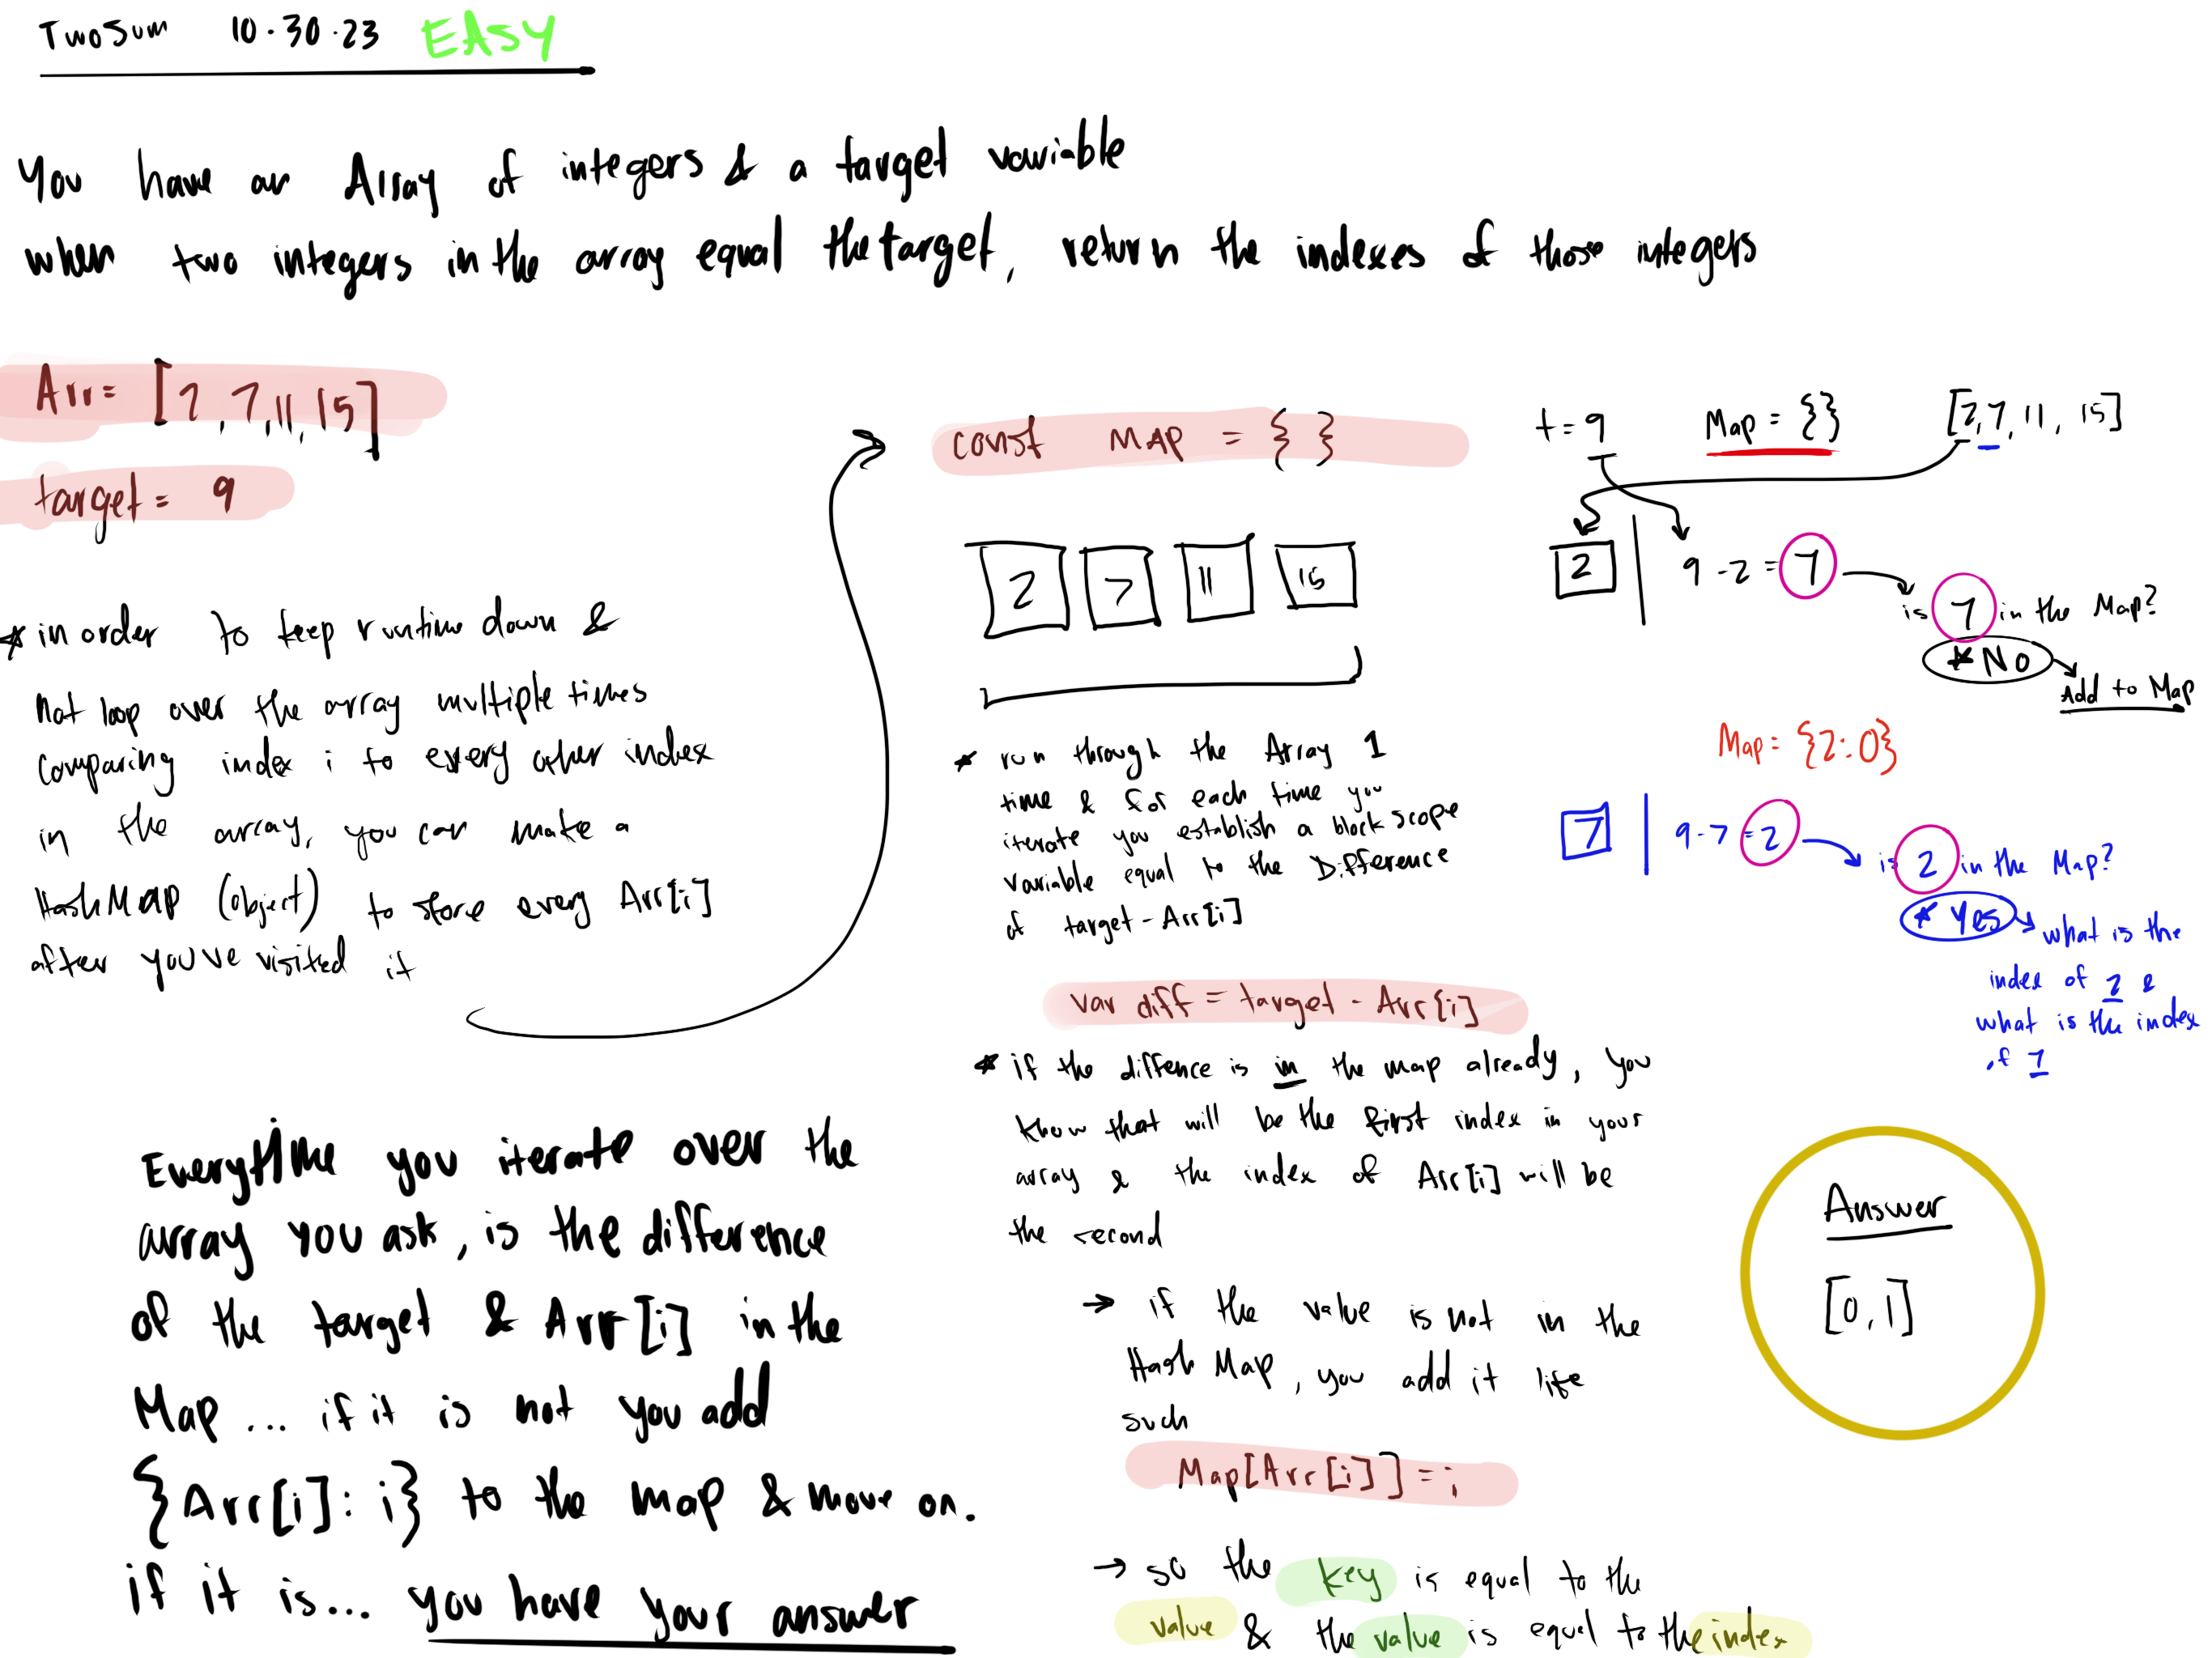 TwoSum 10.30.23 EASY
You have an Array of integers & a target variable
when two integers in the array equal the target, return the indexes of those integers
Arr= [2,7,11,15]
target= 9
* in order to keep runtime down &
not loop over the array multiple times
comparing index i to every other index
in the array, you can make a
HashMap (object) to store every Arr[i]
after youve visited it
Everytime you iterate over the
array you ask, is the difference
of the target & Arr[i] in the
Map... if it is not you add
{Arr[i]: i} to the map & move on.
if it is... you have your answer
const MAP = { }
2 7 11 15
* run through the Array 1
time & for each time you
iterate you establish a block scope
variable equal to the Difference
of target - Arr[i]
var diff = target - Arr[i]
* if the diffence is in the map already, you
know that will be the first index in your
array & the index of Arr[i] will be
the second
→ if the value is not in the
Hash Map, you add it like
such
Map[Arr[i]] = i
→ so the key is equal to the
value & the value is equal to the index
t=9 Map = {} [2,7,11,15]
2 | 9-2=7
is 7 in the Map?
* No
Add to Map
Map= {2:0}
7 | 9-7=2
is 2 in the Map?
* Yes
what is the
index of 2 &
what is the index
of 7
Answer
[0,1]